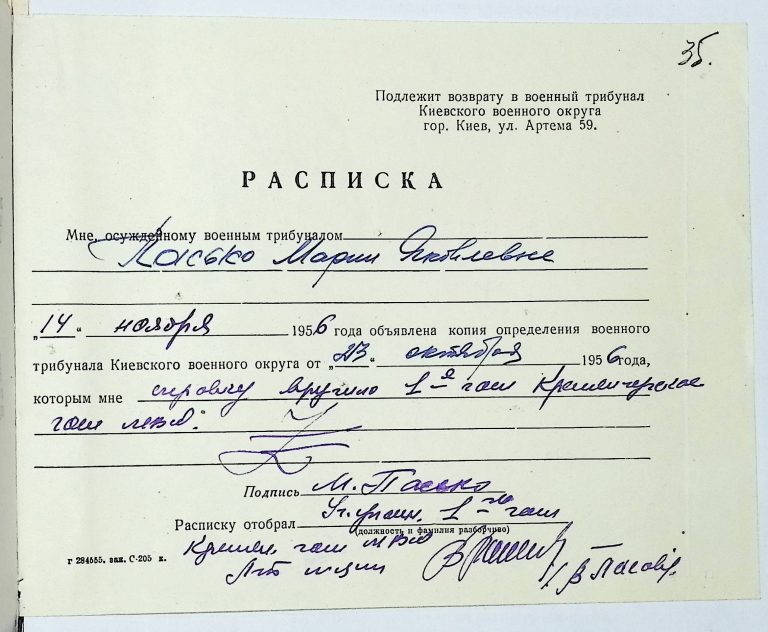 35.
Подлежит возврату в военный трибунал
Киевского военного округа
гор. Киев, ул. Артема 59.
РАСПИСКА
Мне, осужденному военным трибуналом
Пасько Марии Яковлевне
„14“ ноября 1956 года объявлена копия определения военного
трибунала Киевского военного округа от „23“ октября 1956 года,
которым мне справку вручило 1-е гом Кременчугское
гом МВД.
Подпись М. Пасько
Расписку отобрал 1-го гом
(должность и фамилия разборчиво)
Кремен. гом МВД
г 284555. зак. С-205 к.